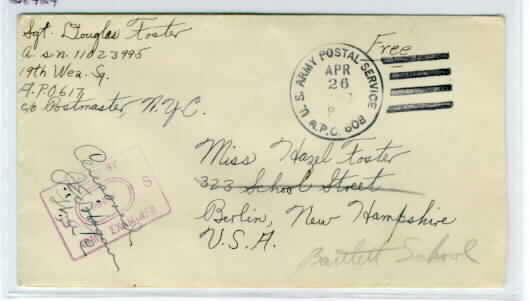 Sgt. Douglas Foster
a.s.n. 11023995
19th Wea. Sq.
A.P.O 617,
c/o Postmaster, N.Y.C.
Free
U. S. ARMY POSTAL SERVICE
APR
26
A.P.O. 608
Miss Hazel Foster
323 School Street
Berlin, New Hampshire
U.S.A.
Bartlett School
BY
S
ARMY EXAMINER